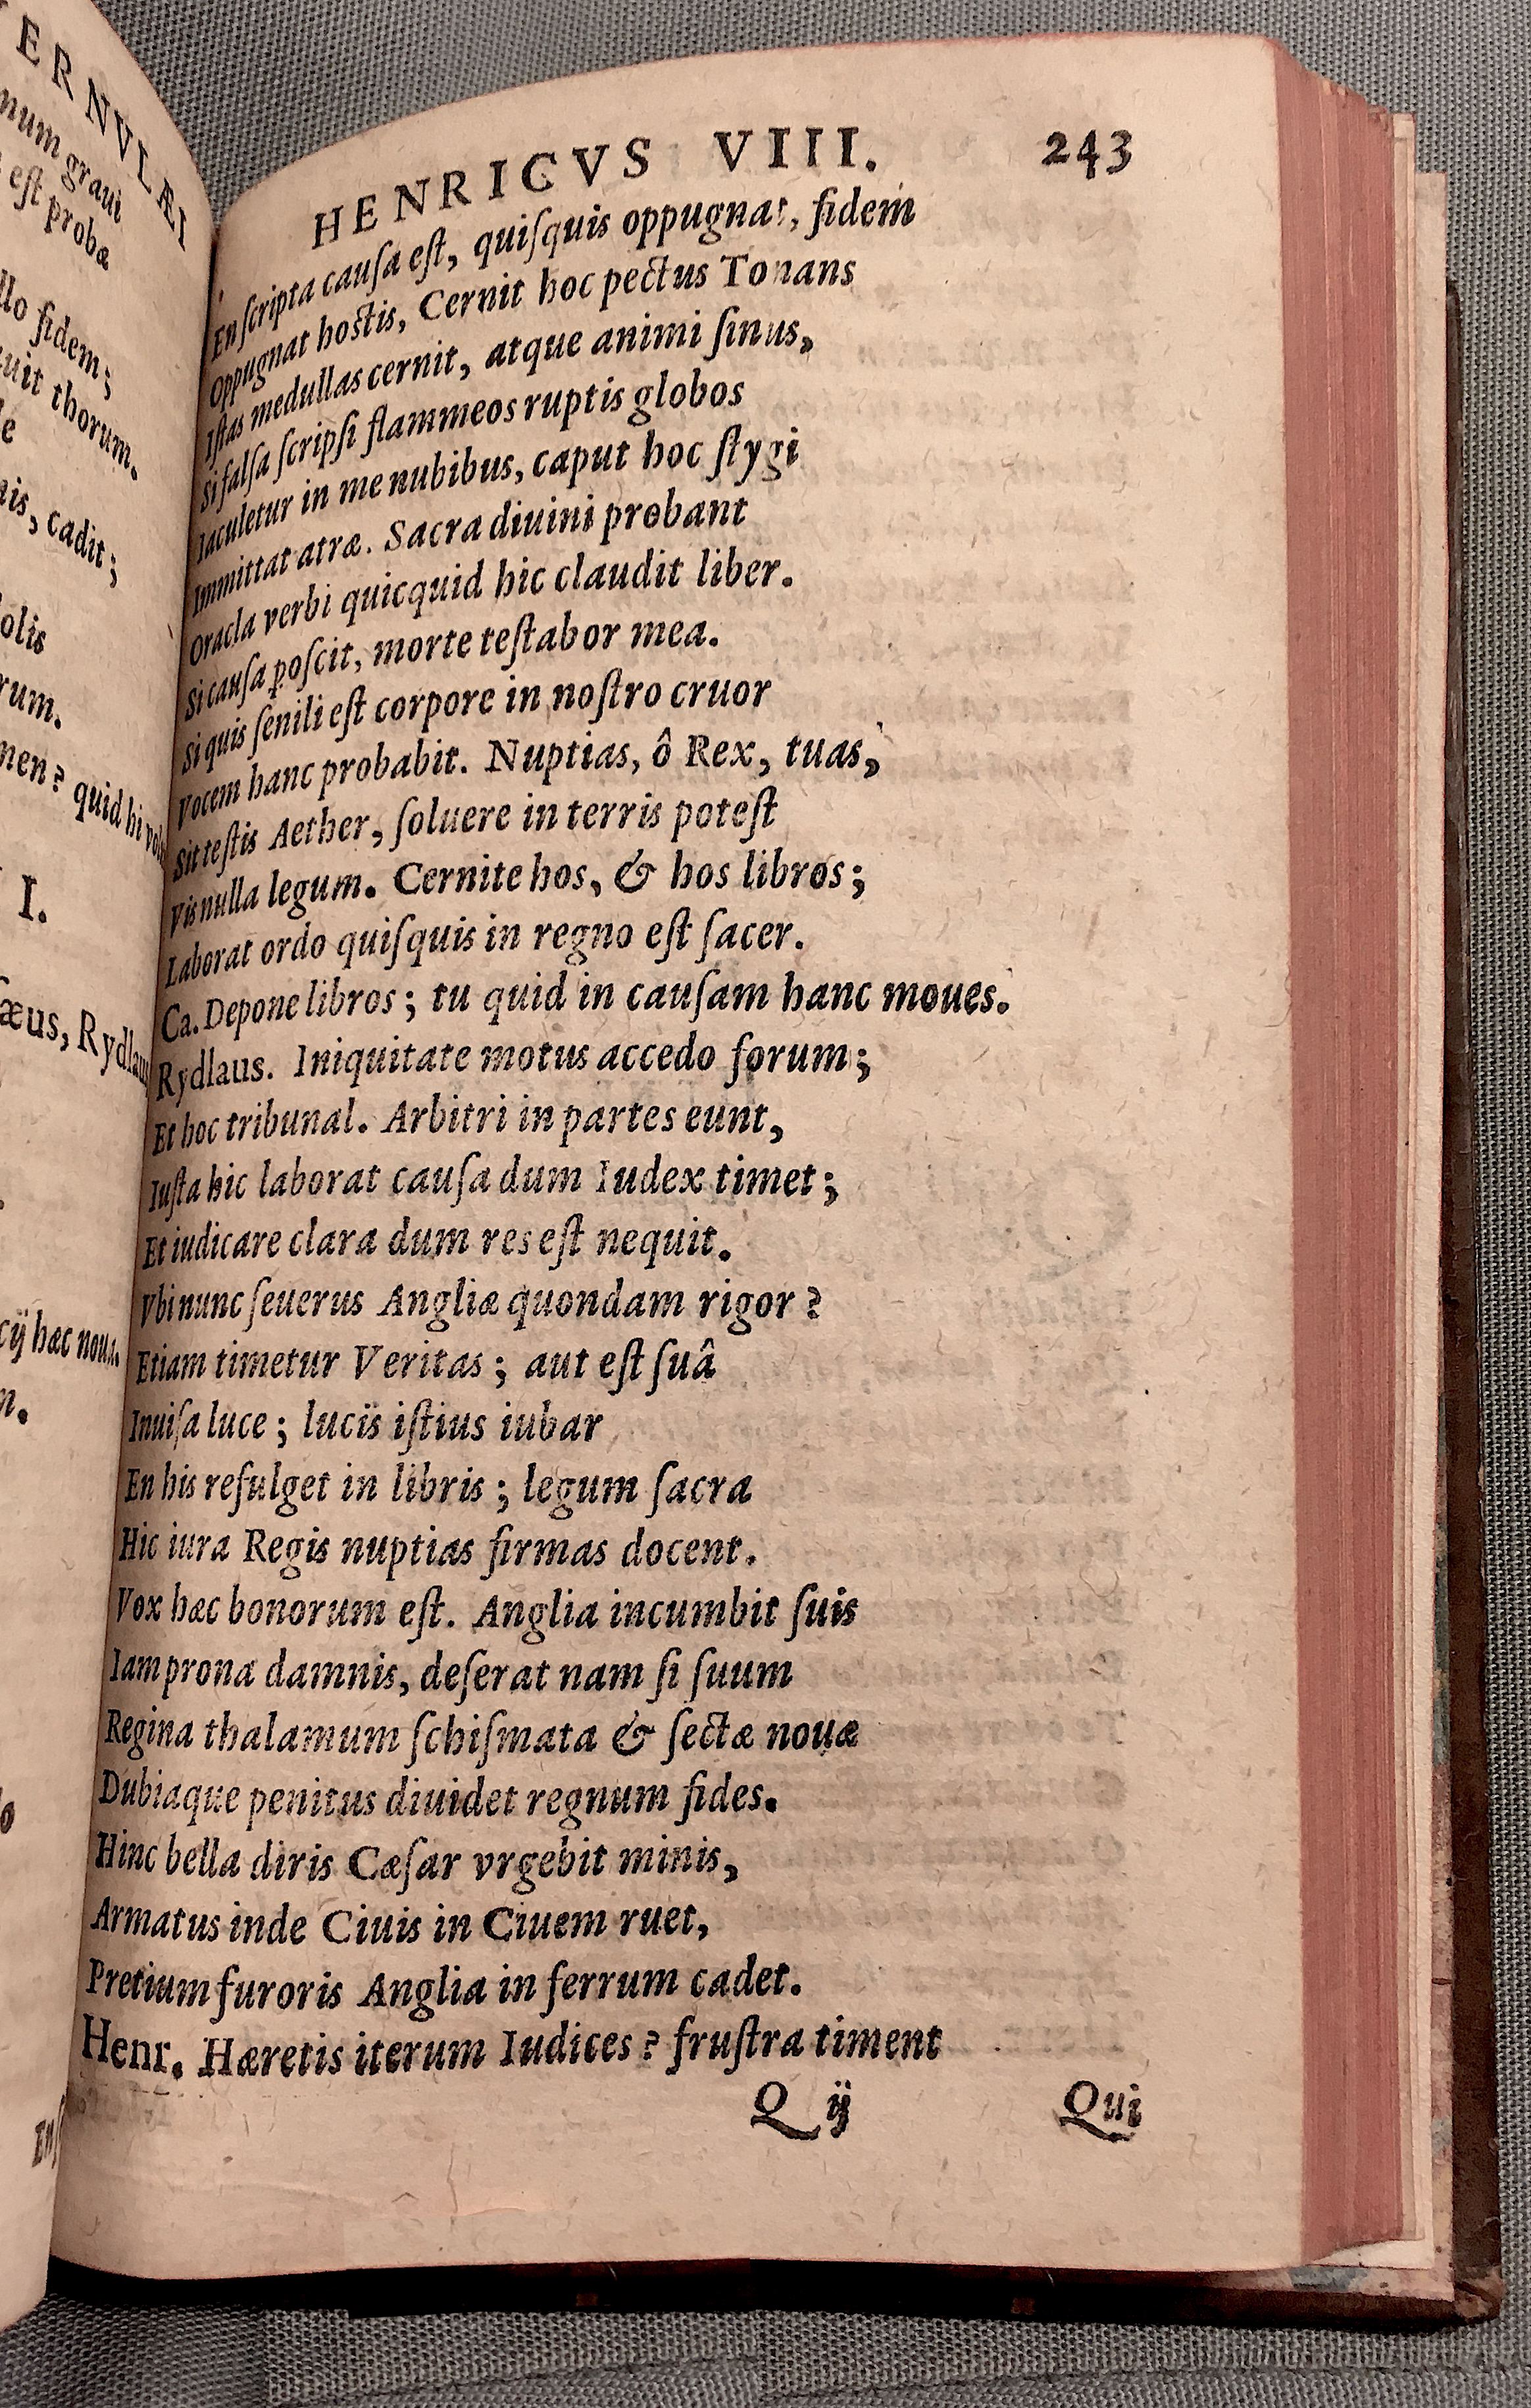 ERNVLÆI
num graui
est probæ
llo fidem;
uit thorum.
is, cadit;
olis
rum.
men? quid hi
I.
æus, Rydlaus
cij hæc noua.
HENRICVS VIII. 243
En ſcripta cauſa eſt, quiſquis oppugnat, fidem
Oppugnat hoſtis, Cernit hoc pectus Tonans
Iſtas medullas cernit, atque animi ſinus,
Si falſa ſcripſi flammeos ruptis globos
Iaculetur in me nubibus, caput hoc ſtygi
Immittat atræ. Sacra diuini probant
Oracla verbi quicquid hic claudit liber.
Si cauſa poſcit, morte teſtabor mea.
Si quis ſenili eſt corpore in noſtro cruor
Vocem hanc probabit. Nuptias, ô Rex, tuas,
Sit teſtis Aether, ſoluere in terris poteſt
Vis nulla legum. Cernite hos, & hos libros;
Laborat ordo quiſquis in regno eſt ſacer.
Ca. Depone libros; tu quid in cauſam hanc moues.
Rydlaus. Iniquitate motus accedo forum;
Et hoc tribunal. Arbitri in partes eunt,
Iuſta hic laborat cauſa dum Iudex timet;
Et iudicare clara dum res eſt nequit.
Vbi nunc ſeuerus Angliæ quondam rigor?
Etiam timetur Veritas; aut eſt ſuâ
Inuiſa luce; lucis iſtius iubar
En his refulget in libris; legum ſacra
Hic iura Regis nuptias firmas docent.
Vox hæc bonorum eſt. Anglia incumbit ſuis
Iam prona damnis, deſerat nam ſi ſuum
Regina thalamum ſchiſmata & ſectæ nouæ
Dubiaque penitus diuidet regnum fides.
Hinc bella diris Cæſar vrgebit minis,
Armatus inde Ciuis in Ciuem ruet,
Pretium furoris Anglia in ferrum cadet.
Henr. Hæretis iterum Iudices? fruſtra timent
Q ij Qui